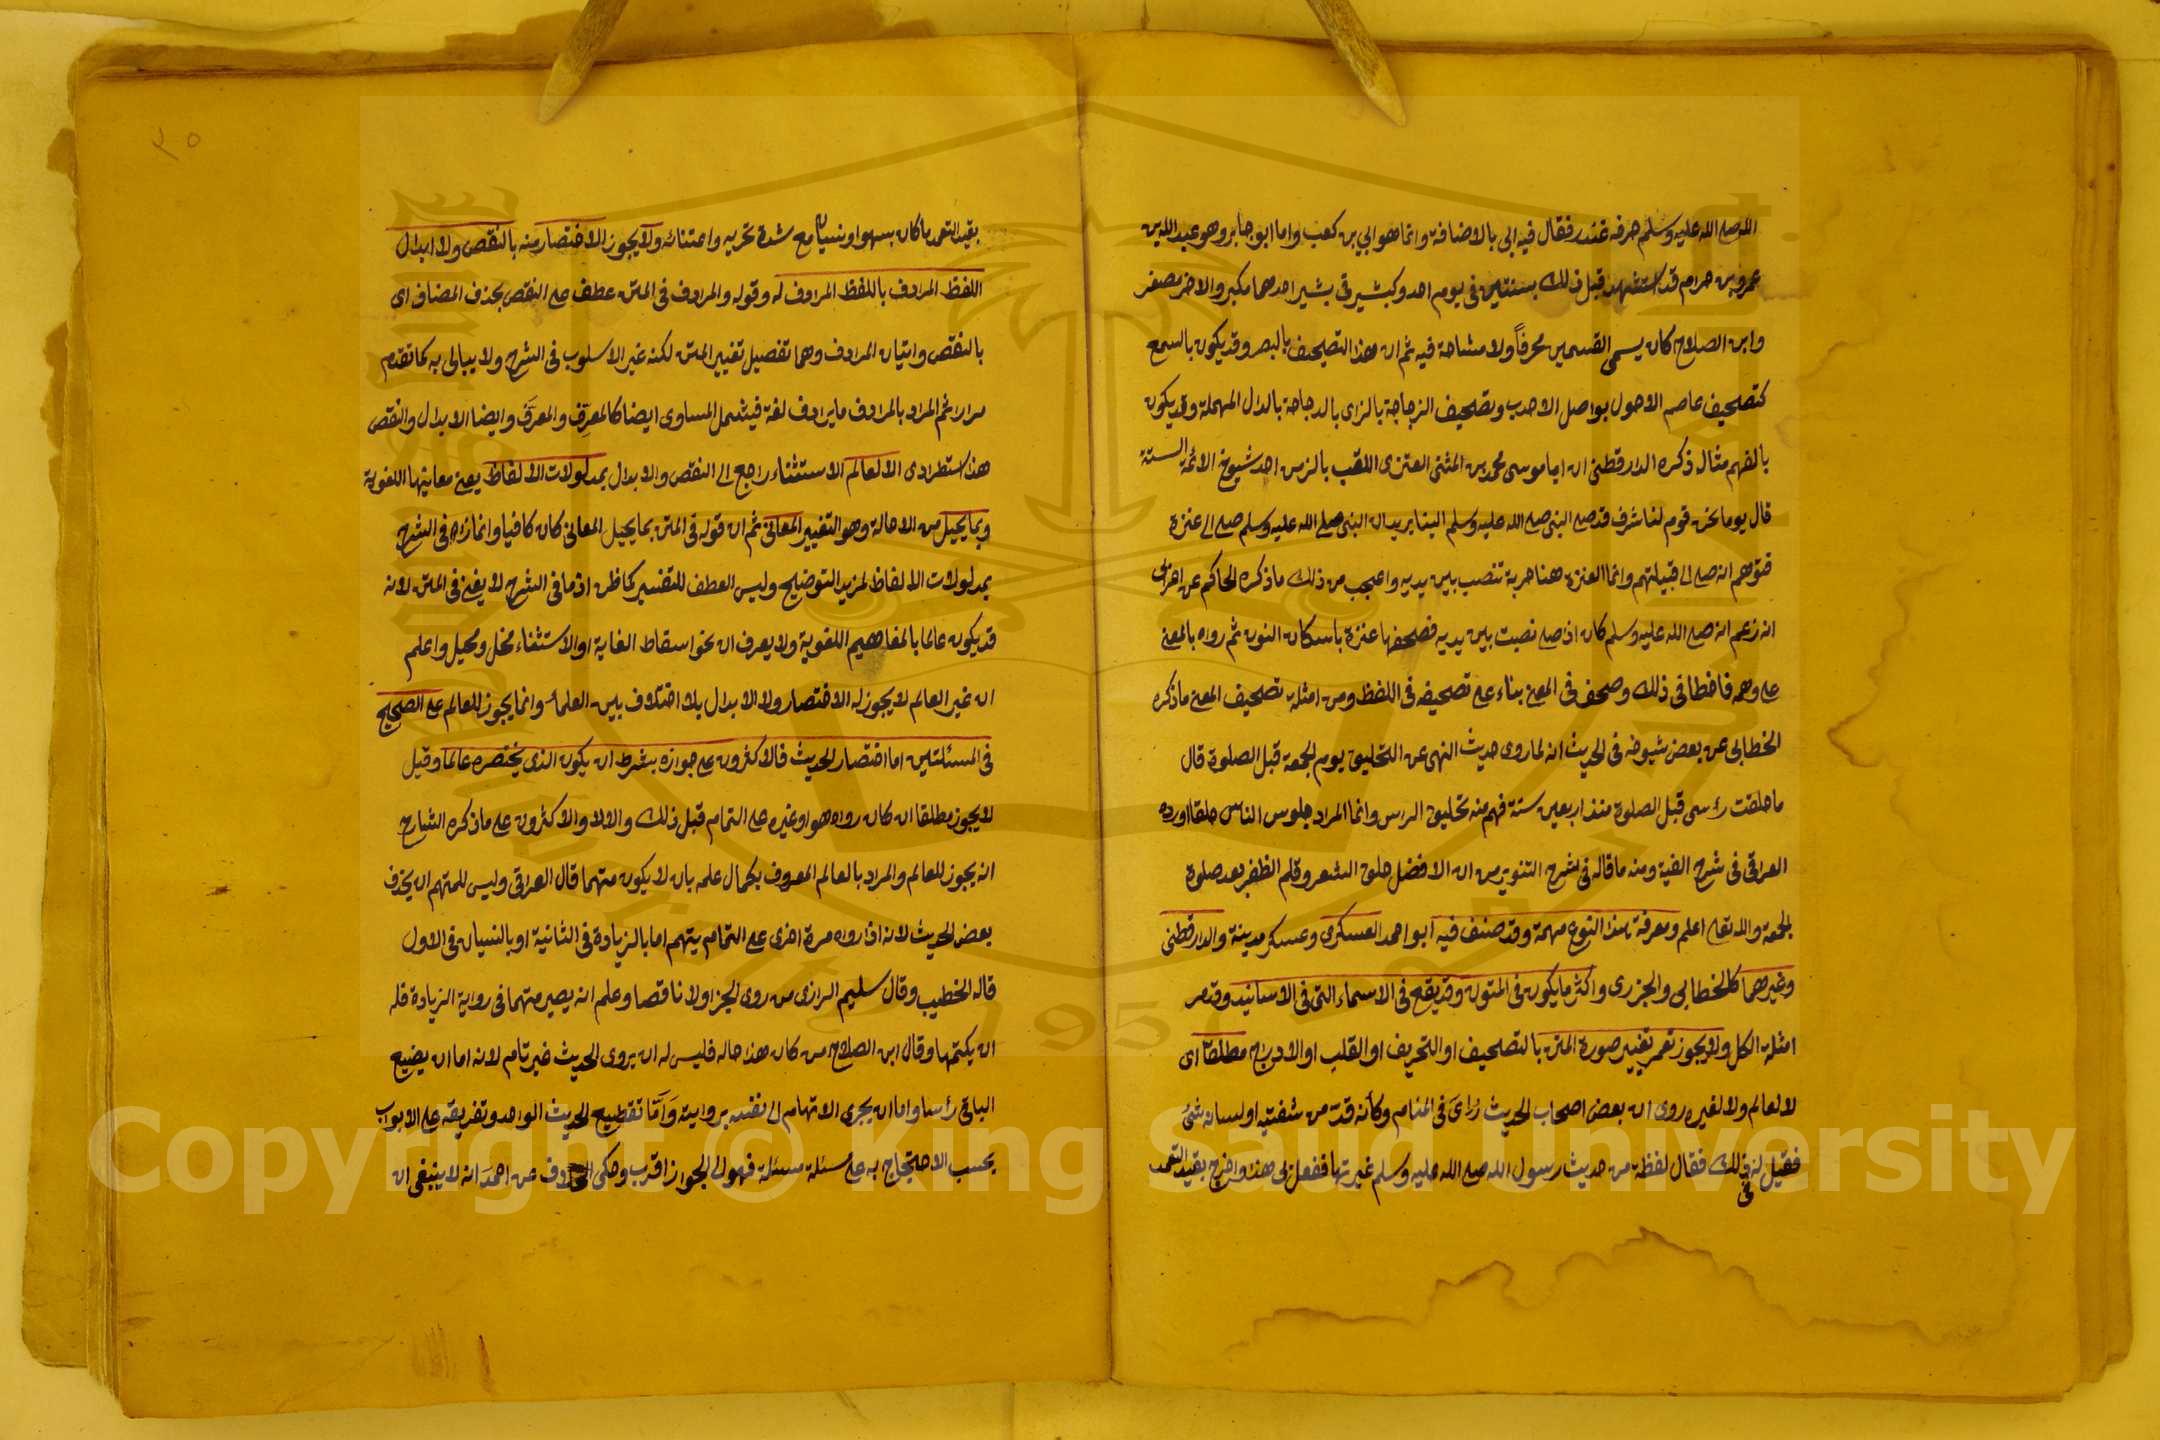 الله صلى الله عليه وسلم حرفه غندر فقال فيه ابى بالاضافة وانما هو ابي بن كعب واما ابو جابر وهو عبد الله بن
عمرو بن حرام قد استشهد قبل ذلك بسنتين فى يوم احد وكبشير فى بشير احدهما مكبر والاخر مصغر
وابن الصلاح كان يسمى القسمين محرفاً ولا مشاحة فيه ثم ان هذا التصحيف بالبصر وقد يكون بالسمع
كتصحيف عاصم الاحول بواصل الاحدب وتصحيف الزجاجة بالزاى بالدجاجة بالدال المهملة وقد يكون
بالفهم مثال ذكره الدارقطنى ان ابا موسى محمد بن المثنى العنزى اللقب بالزمن احد شيوخ الائمة الستة
قال يوما نحن قوم لنا شرف قد صلى النبى صلى الله عليه وسلم الينا يريد ان النبى صلى الله عليه وسلم صلى الى عنزة
فتوهم انه صلى الى قبيلتهم وانما العنزة هنا حربة تنصب بين يديه واعجب من ذلك ما ذكره الحاكم عن اعرابى
انه زعم انه صلى الله عليه وسلم كان اذ صلى نصبت بين يديه فصحفها عنزة باسكان النون ثم رواه بالمعنى
على وهمه فاخطا فى ذلك وصحف فى المعنى بناء على تصحيفه فى اللفظ ومن امثلة تصحيف المعنى ما ذكره
الخطابى عن بعض شيوخه فى الحديث انه لما روى حديث النهى عن التحليق يوم الجمعة قبل الصلوة قال
ما حلقت رأسى قبل الصلوة منذ اربعين سنة فهم منه تحليق الراس وانما المراد جلوس الناس حلقا اورده
العراقى فى شرح الفية ومنه ما قاله فى شرح التنوير من ان الافضل حلق الشعر وقلم الظفر بعد صلوة
الجمعة والله تعالى اعلم ومعرفة هذا النوع مهمة وقد صنف فيه ابو احمد العسكرى وعسكر مدينة والدارقطنى
وغيرهما كالخطابى والجزرى واكثر ما يكون فى المتون وقد يقع فى الاسماء التى فى الاسانيد وقد مر
امثلة الكل ولا يجوز تعمد تغيير صورة المتن بالتصحيف او التحريف او القلب او الادراج مطلقا اى
لا لعالم ولا لغيره روى ان بعض اصحاب الحديث رُاىَ فى المنام وكأنه قد من شفتيه او لسانه شئ
فقيل له فى ذلك فقال لفظة من حديث رسول الله صلى الله عليه وسلم غيرتها ففعل بى هذا واخرج بقيد التعمد
بقيد التعمد ما كان بسهو او نسيان مع شدة تحريه واعتنائه ولا يجوز الاختصار منه بالنقص ولا ابدال
اللفظ المرادف باللفظ المرادف له وقوله والمرادف فى المتن عطف على النقص بحذف المضاف اى
بالنقص واتيان المرادف وهما تفصيل تغيير المتن لكنه غير الاسلوب فى الشرح ولا يبالى به كما تقدم
مرارا ثم المراد بالمرادف ما يرادف لغة فيشمل المساوى ايضا كالمعرِّف والمعرَّف وايضا الابدال والنقص
هذا استطرادى الا لعالم الاستثناء راجع الى النقص والابدال بمدلولات الالفاظ يعنى معانيها اللغوية
وبما يحيل من الاحالة وهو التغيير المعانى ثم ان قوله فى المتن بما يحيل المعانى كان كافيا وانما زاد فى الشرح
بمدلولات الالفاظ لمزيد التوضيح وليس العطف للتفسير كما ظن اذ ما فى الشرح لا يغنى فى المتن لانه
قد يكون عالما بالمفاهيم اللغوية ولا يعرف ان نحو اسقاط الغاية او الاستثناء مخل ومحيل واعلم
ان غير العالم لا يجوز له الاختصار ولا الابدال بلا اختلاف بين العلماء وانما يجوز للعالم على الصحيح
فى المسئلتين اما اختصار الحديث فالاكثرون على جوازه بشرط ان يكون الذى يختصره عالما وقيل
لا يجوز مطلقا ان كان رواه هو او غيره على التمام قبل ذلك والا لا والاكثرون على ما ذكره الشارح
انه يجوز للعالم والمراد بالعالم المعروف بكمال علمه بان لا يكون متهما قال العراقى وليس للمتهم ان يحذف
بعض الحديث لانه اذا رواه مرة اخرى على التمام يتهم اما بالزيادة فى الثانية او بالنسيان فى الاول
قاله الخطيب وقال سليم الرازى من روى الجز اولا ناقصا وعلم انه يصير متهما فى رواية الزيادة فله
ان يكتمها وقال ابن الصلاح من كان هذا حاله فليس له ان يروى الحديث غير تام لانه اما ان يضيع
الباقى رأسا واما ان يجرى الاتهام الى نفسه بروايته وَاَمّا تقطيع الحديث الواحد وتفريقه على الابواب
بحسب الاحتجاج به على مسئلة مسئلة فهو الى الجواز اقرب وحكى عن احمد انه لا ينبغى ان
٣٥
Copyright © King Saud University
1957